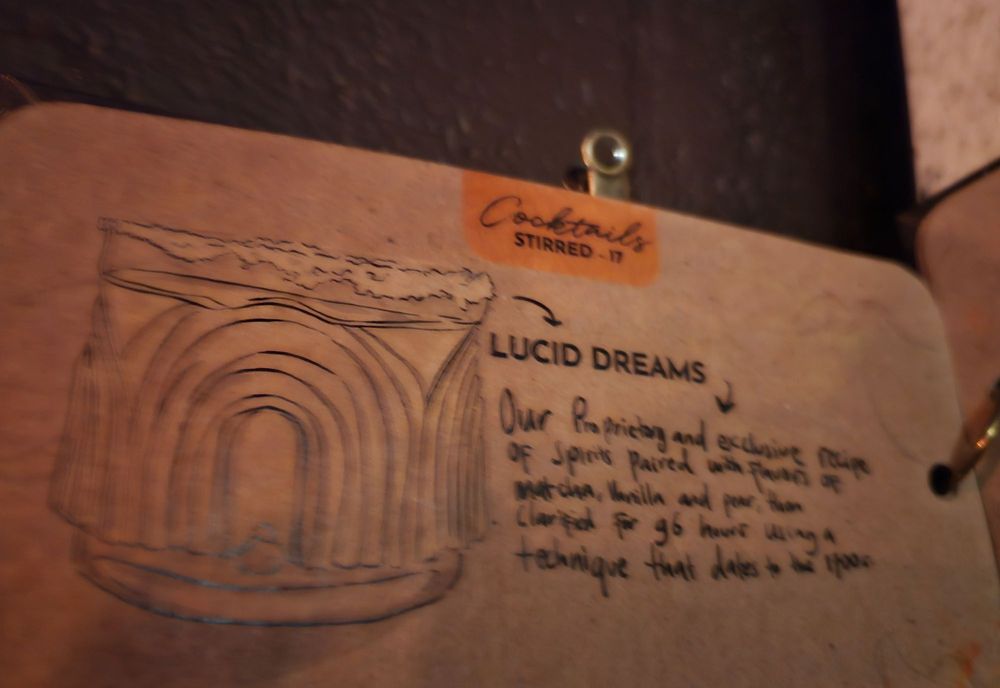 Cocktails
STIRRED - 17
LUCID DREAMS
Our Proprietary and exclusive recipe
OF Spirits Paired with flavors OF
matcha, Vanilla and pear, then
Clarified For 96 hours using a
technique that dates to the 1700s